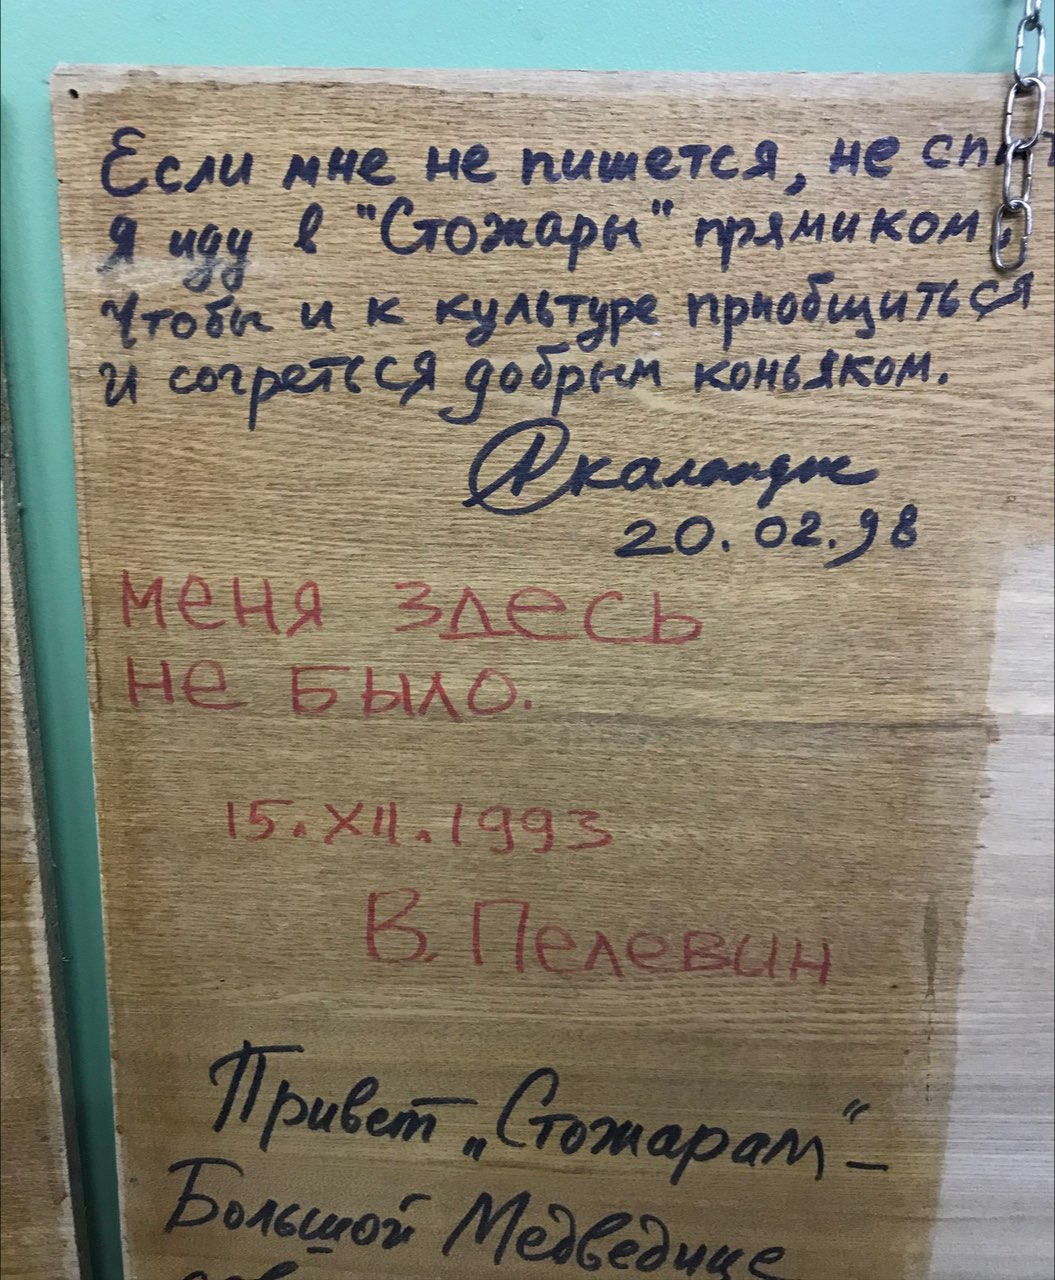 Если мне не пишется, не
Я иду в "Стожары" прямиком,
Чтобы и к культуре приобщиться
И согреться добрым коньяком.
20.02.98
меня здесь
не было.
15.XII.1993
В. Пелевин
Привет „Стожарам" –
Большой Медведице